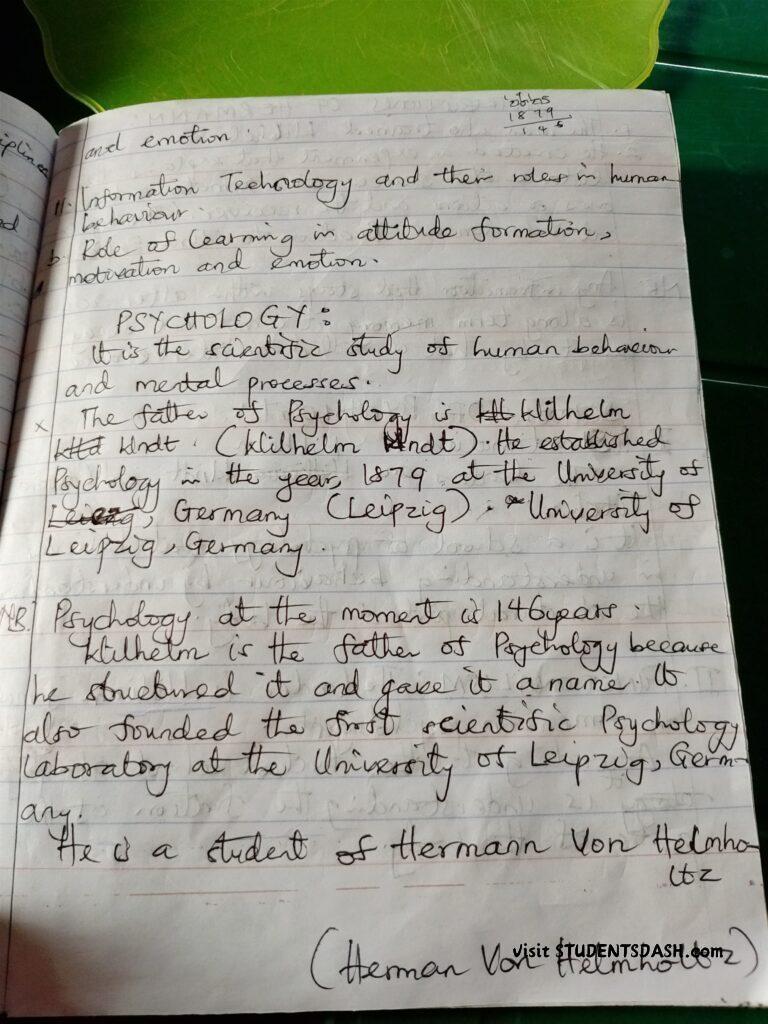 2025
1879
146
and emotion.
11. Information Technology and their roles in human
behaviour.
b. Role of Learning in attitude formation,
motivation and emotion.
PSYCHOLOGY:
It is the scientific study of human behaviour
and mental processes.
x The father of Psychology is Wilhelm
Wndt. (Wilhelm Wndt). He established
Psychology in the year, 1879 at the University of
Leipzg, Germany (Leipzig). *University of
Leipzig, Germany.
NB. Psychology at the moment is 146years.
Wilhelm is the father of Psychology because
he structured it and gave it a name. It
also founded the first scientific Psychology
Laboratory at the University of Leipzig, Germ-
any.
He is a student of Hermann Von Helmho-
ltz
(Herman Von Helmholtz)
visit STUDENTSDASH.com